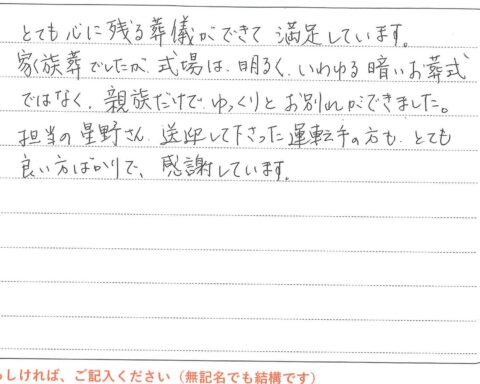 とても心に残る葬儀ができて満足しています。
家族葬でしたが、式場は、明るく、いわゆる暗いお葬式
ではなく、親族だけでゆっくりとお別れができました。
担当の星野さん、送迎して下さった運転手の方も、とても
良い方ばかりで、感謝しています。
らしければ、ご記入ください（無記名でも結構です）